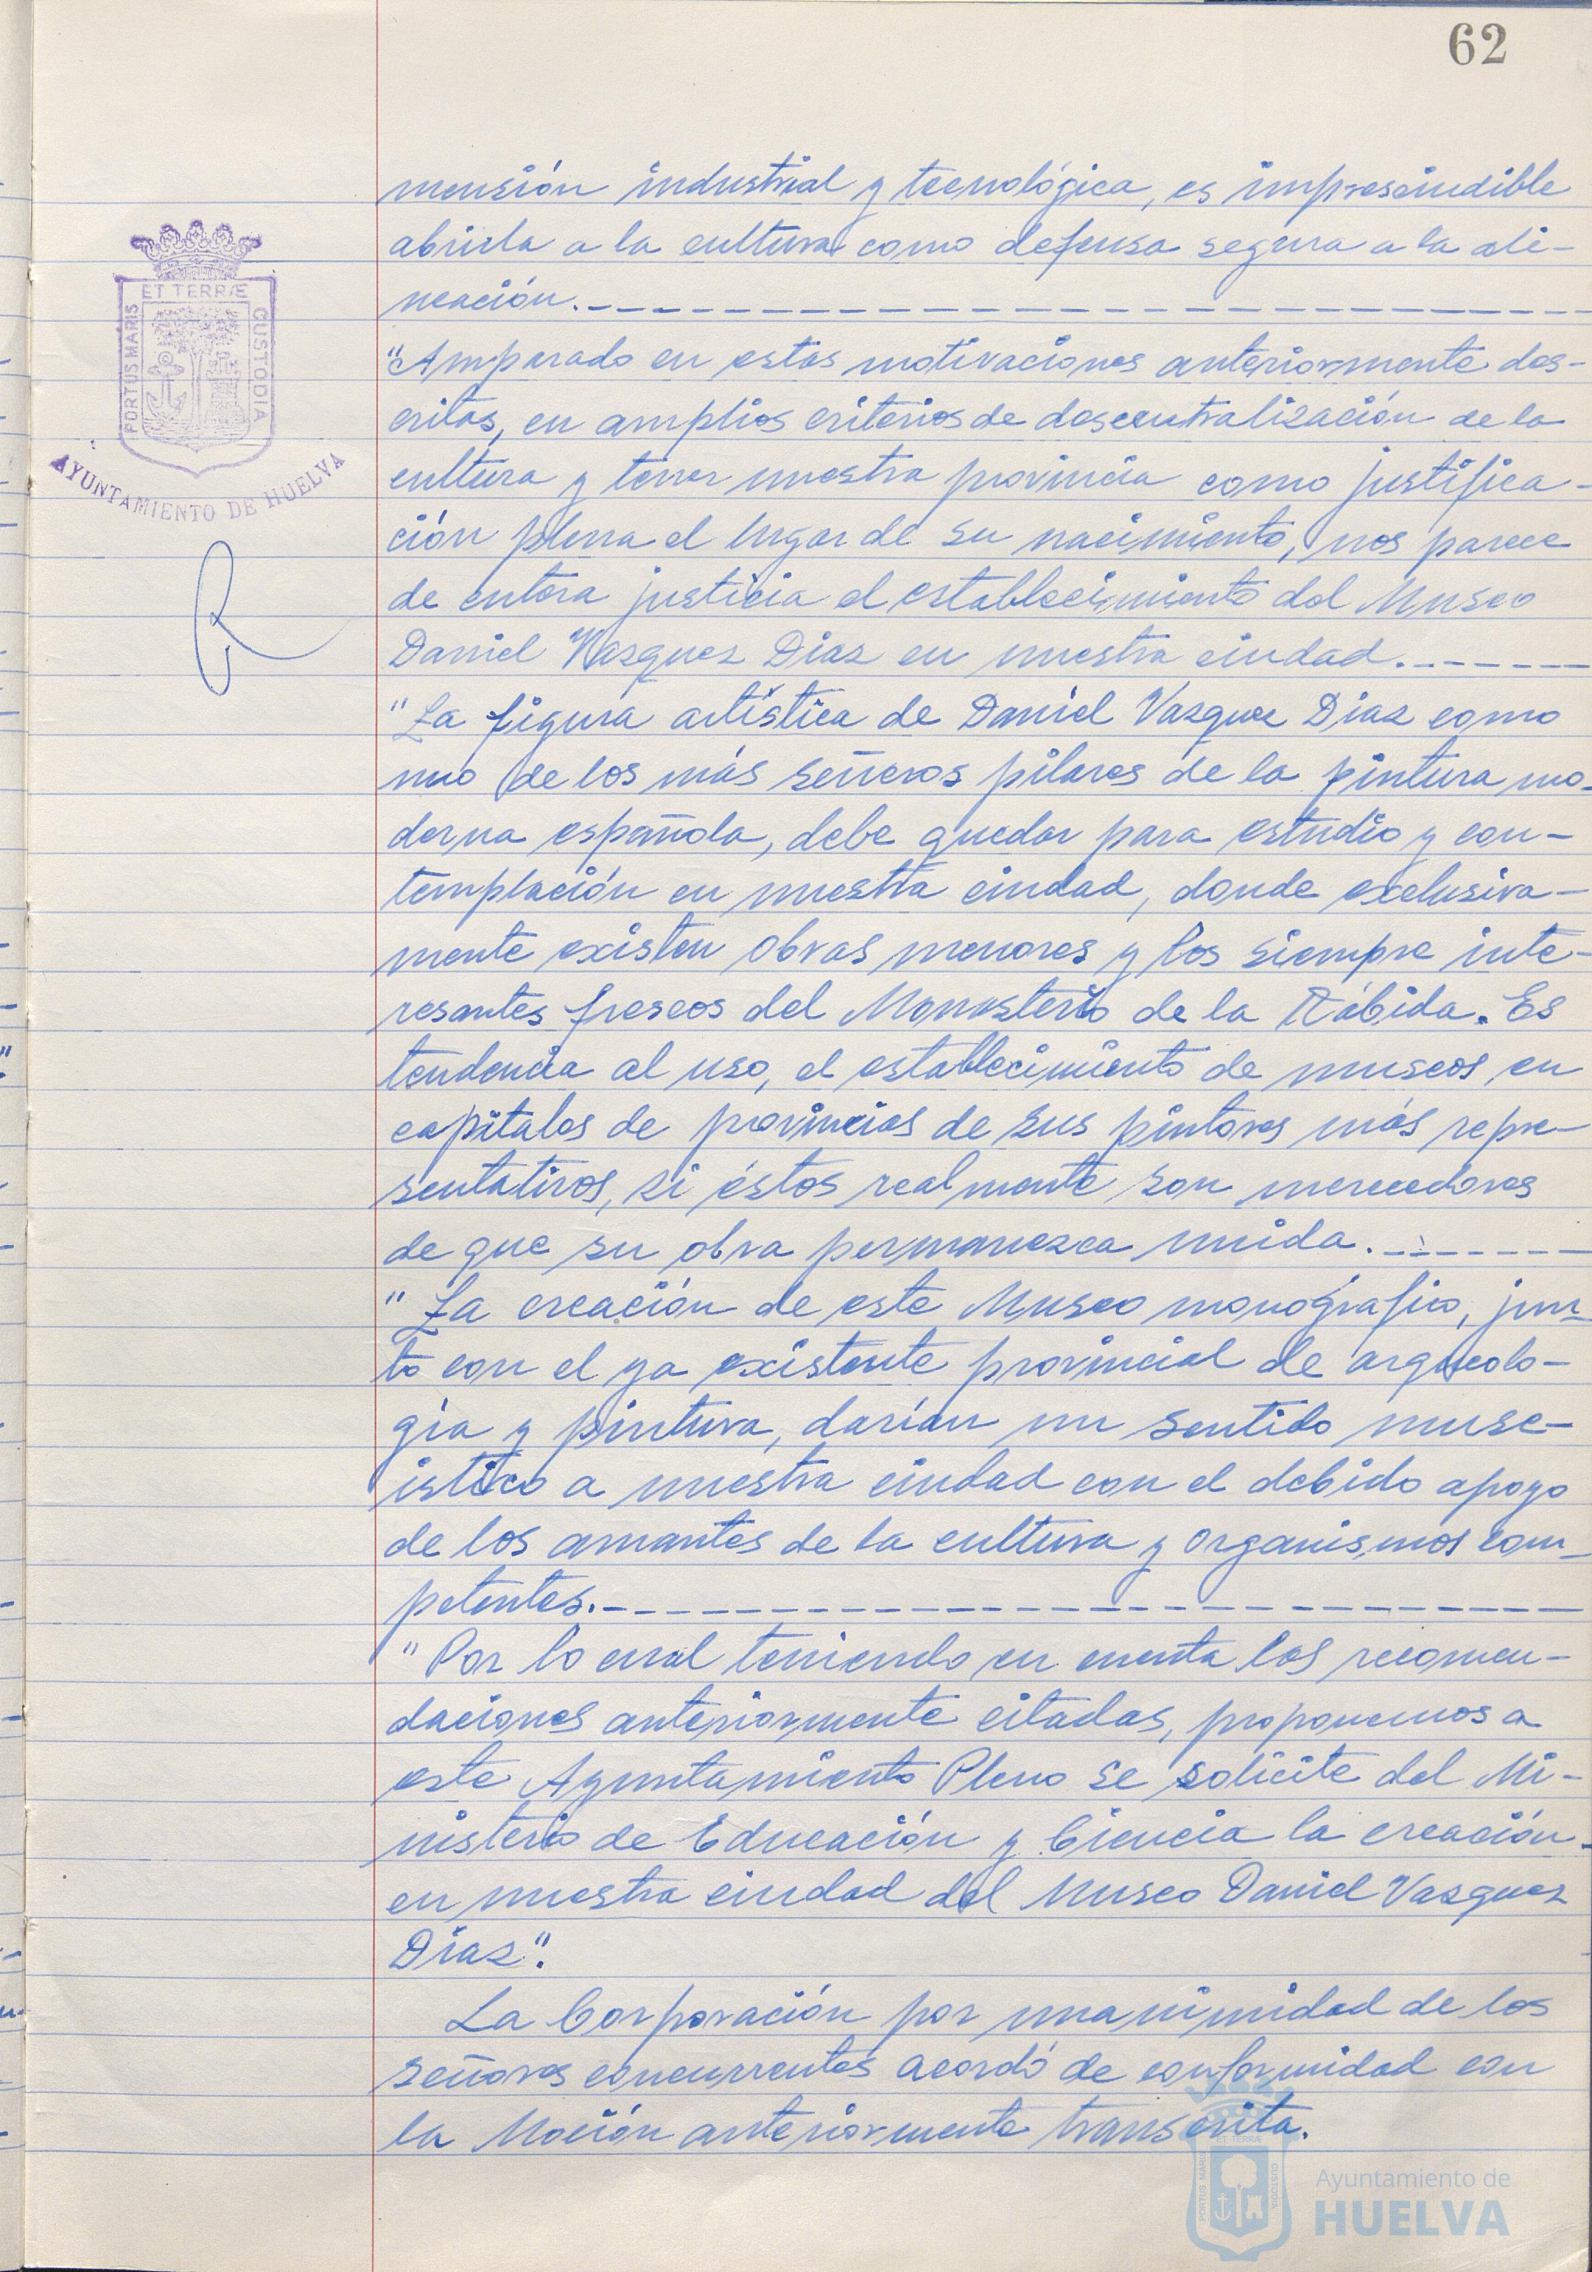 62
mensión industrial y tecnológica, es imprescindible
abrirla a la cultura como defensa segura a la ali-
neación.
ET TERRÆ
PORTUS MARIS
CUSTODIA
AYUNTAMIENTO DE HUELVA
"Amparado en estas motivaciones anteriormente des-
critas, en amplios criterios de descentralización de la
cultura y tener nuestra provincia como justifica-
ción plena el lugar de su nacimiento, nos parece
de entera justicia el establecimiento del Museo
Daniel Vazquez Diaz en nuestra ciudad.
"La figura artística de Daniel Vazquez Diaz como
uno de los más señeros pilares de la pintura mo-
derna española, debe quedar para estudio y con-
templación en nuestra ciudad, donde exclusiva-
mente existen obras menores y los siempre inte-
resantes frescos del Monasterio de la Rábida. Es
tendencia al uso, el establecimiento de museos en
capitales de provincias de sus pintores más repre-
sentativos, si éstos realmente son merecedores
de que su obra permanezca unida.
"La creación de este Museo monográfico, jun-
to con el ya existente provincial de arqueolo-
gía y pintura, darían un sentido muse-
ístico a nuestra ciudad con el debido apoyo
de los amantes de la cultura y organismos com-
petentes.
"Por lo cual teniendo en cuenta las recomen-
daciones anteriormente citadas, proponemos a
este Ayuntamiento Pleno se solicite del Mi-
nisterio de Educación y Ciencia la creación
en nuestra ciudad del Museo Daniel Vazquez
Diaz".
La Corporación por unanimidad de los
señores concurrentes acordó de conformidad con
la Moción anteriormente transcrita.
ET TERRA
PORTUS MARIS
CUSTODIA
Ayuntamiento de
HUELVA